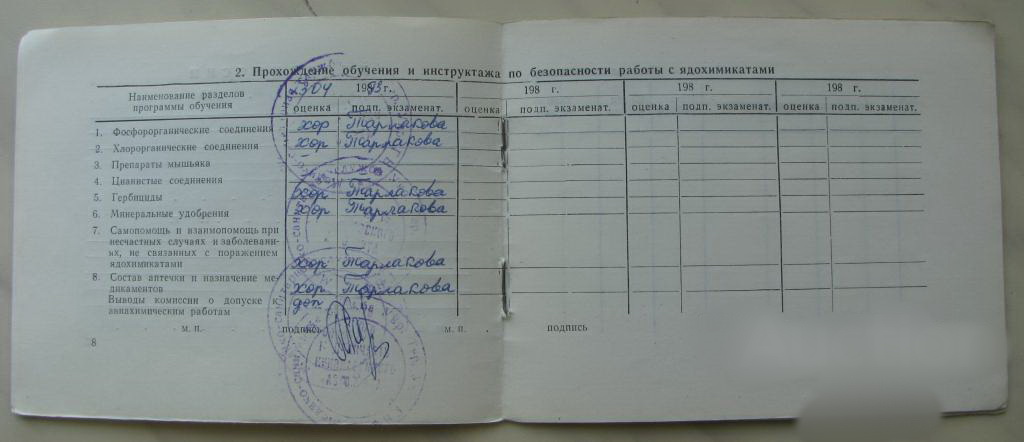 2. Прохождение обучения и инструктажа по безопасности работы с ядохимикатами
Наименование разделов программы обучения
2304 1983 г. 198 г. 198 г. 198 г.
оценка подп. экзаменат. оценка подп. экзаменат. оценка подп. экзаменат. оценка подп. экзаменат.
1. Фосфорорганические соединения хор Тарлакова
2. Хлорорганические соединения хор Тарлакова
3. Препараты мышьяка
4. Цианистые соединения
5. Гербициды хор Тарлакова
6. Минеральные удобрения хор Тарлакова
7. Самопомощь и взаимопомощь при
несчастных случаях и заболевани-
ях, не связанных с поражением
ядохимикатами хор Тарлакова
8. Состав аптечки и назначение ме-
дикаментов хор Тарлакова
Выводы комиссии о допуске к доп
авиахимическим работам
м. п. подпись м. п. подпись
8